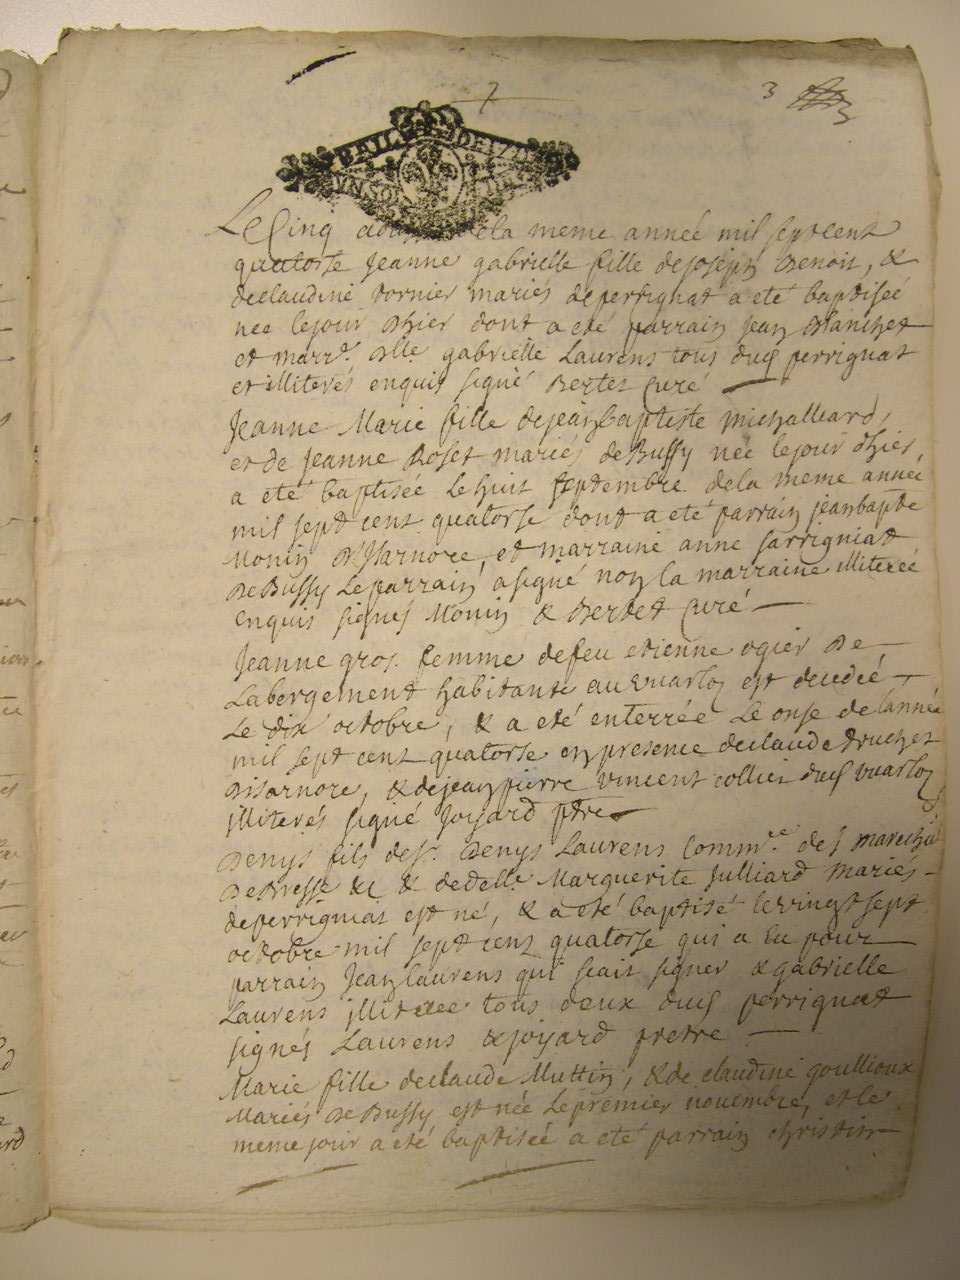 7
3
BAIL DE
VN SOL
Le Cinq dela meme année mil sept cent
quatorse Jeanne gabrielle fille de joseph Benoit, &
declaudine tornier mariés de perrignat a eté baptisée
née le jour d'hier dont a eté parrain jean Blanchet
et marr.e dlle gabrielle Laurens tous dud perrignat
et illiterés enquis signé Bertet curé
Jeanne Marie fille de jean baptiste Michalleard,
et de Jeanne Roset mariés de Bussy née le jour d'hier,
a eté baptisée le huit septembre dela meme année
mil sept cent quatorse dont a eté parrain jean bapte
Monin D'Isarnore, et marraine anne sarrigniat
de Bussy le parrain a signé non la marraine illiterée
enquis signés Monin & Bertet curé
Jeanne gros femme de feu etienne ogier De
Labergement habitante au vuarloz est decedée
le dix octobre, & a eté enterrée le onse de l'année
mil sept cent quatorse en presence declaude truchet
disarnore, & de jean pierre vincent collier dud vuarloz
illiterés signé joyard ptre
Denys fils de sr. Denys Laurens Comm.re des marechaux
De Bresse &c & de delle Marguerite Julliard mariés
de perrignat est né, & a eté baptisé le vingt sept
octobre mil sept cens quatorse qui a eu pour
parrain Jean laurens qui scait signer & gabrielle
Laurens illiterée tous deux dud perrignat
signés Laurens & joyard pretre
Marie fille declaude Muttin, & de claudine goullioux
Mariés De Bussy est née le premier novembre, et le
meme jour a eté baptisée a eté parrain christin